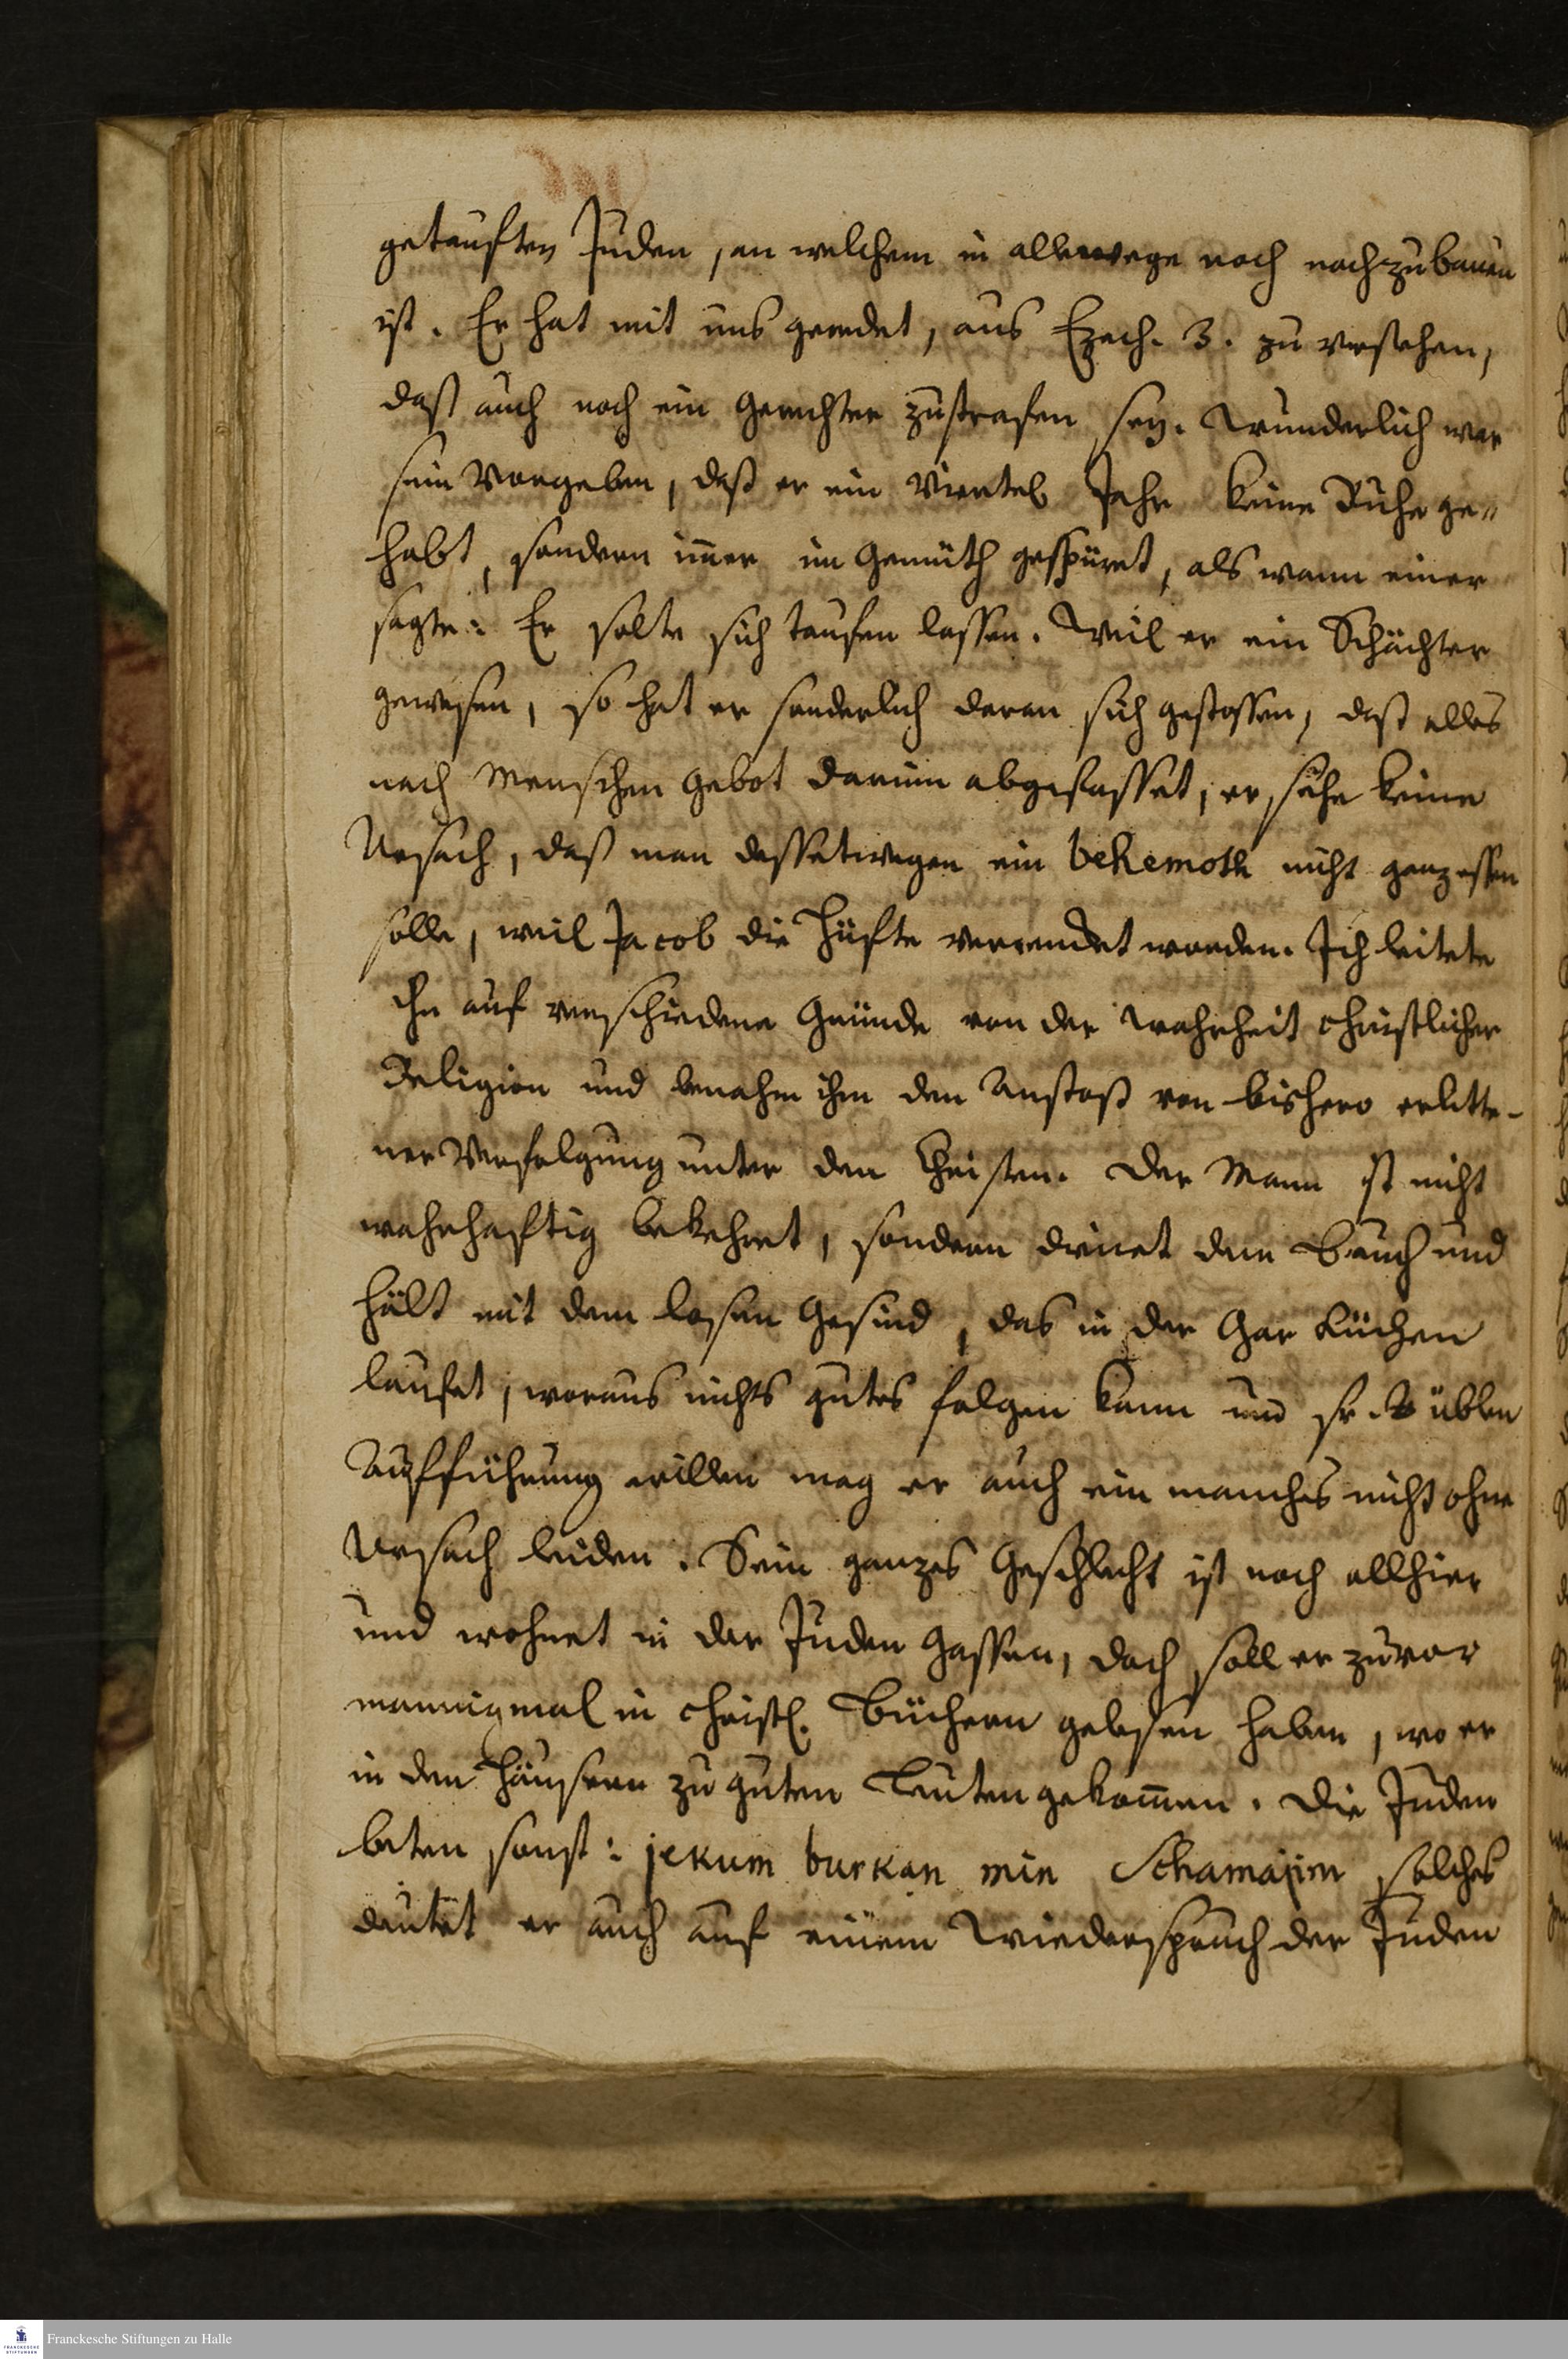 getaufften Juden, an welchem in allewege noch nachzubauen
ist. Er hat mit uns geredet, aus Ezech. 3. zu verstehen,
daß auch noch ein Gerechter zustrafen sey. Wunderlich war
sein Vorgeben, daß er ein Viertel Jahr keine Ruhe ge-
habt, sondern im̅er im Gemüth gespüret, als wann einer
sagte: Er solte sich taufen lassen. Weil er ein Schächter
gewesen, so hat er sonderlich daran sich gestossen, daß alles
nach Menschen Gebot darinn abgefasset, er sehe keine
Ursach, daß man dessetwegen ein behemoth nicht ganz essen
solle, weil Jacob die Hüfte verrendet worden. Ich leitete
ihn auf verschiedene Gründe von der Wahrheit christlicher
Religion und benahm ihm den Anstoß von bishero erlitte-
ner Verfolgung unter den Christen. Der Mann ist nicht
wahrhaftig bekehret, sondern dienet dem Bauch und
hält mit dem losen Gesind, das in der Gar Küchen
laufet, woraus nichts gutes folgen kann und üblen
Aufführung willen mag er auch ein manches nicht ohne
Ursach leiden. Sein ganzes Geschlecht ist noch allhier
und wohnet in der Juden Gassen, doch soll er zuvor
mannigmal in christl. Büchern gelesen haben, wo er
in den Häusern zu guten Leuten gekom̅en. Die Juden
beten sonst: jekum burkan min Schamajim solches
deutet er auch auf einem Wiederspruch der Juden
Franckesche Stiftungen zu Halle